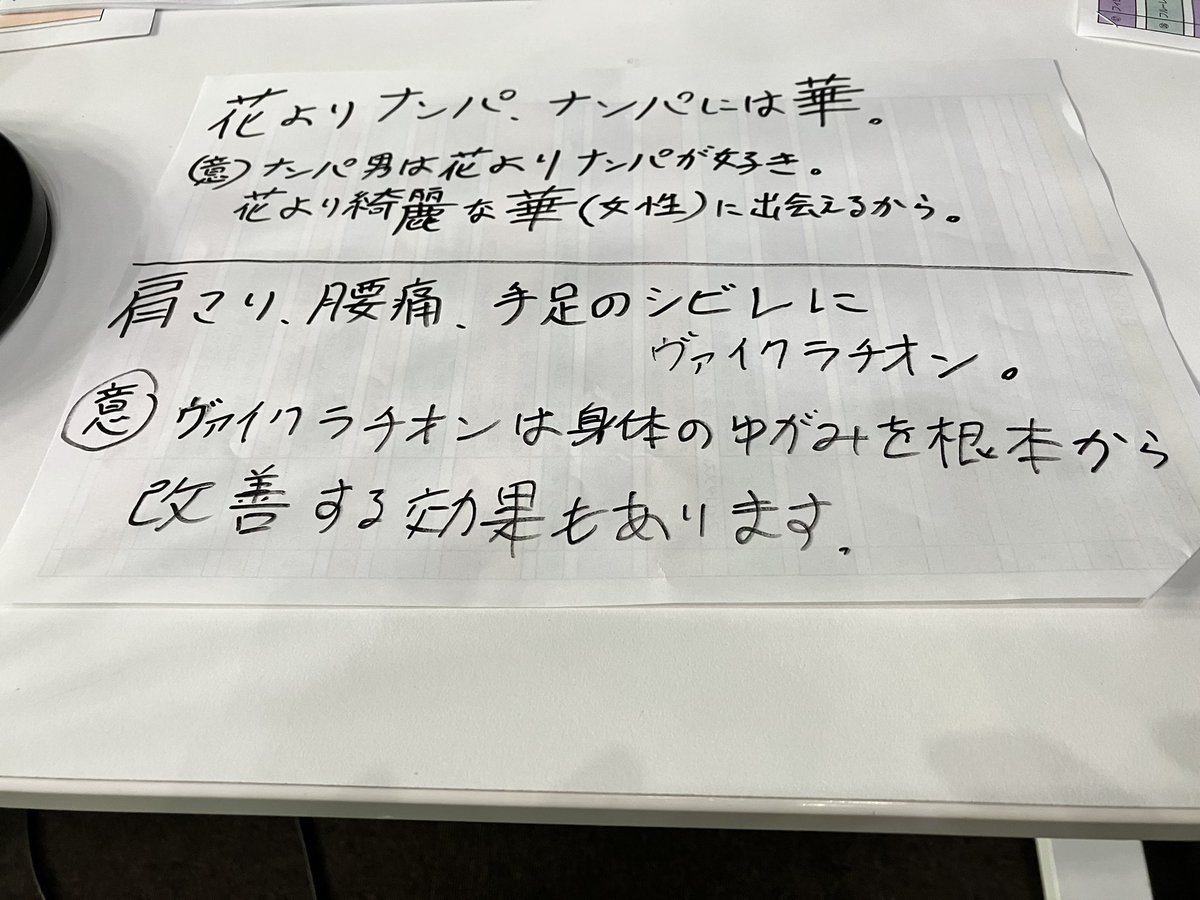 花よりナンパ、ナンパには華。
(意)ナンパ男は花よりナンパが好き。
花より綺麗な華(女性)に出会えるから。
肩こり、腰痛、手足のシビレに
ヴァイクラチオン。
意 ヴァイクラチオンは身体のゆがみを根本から
改善する効果もあります.